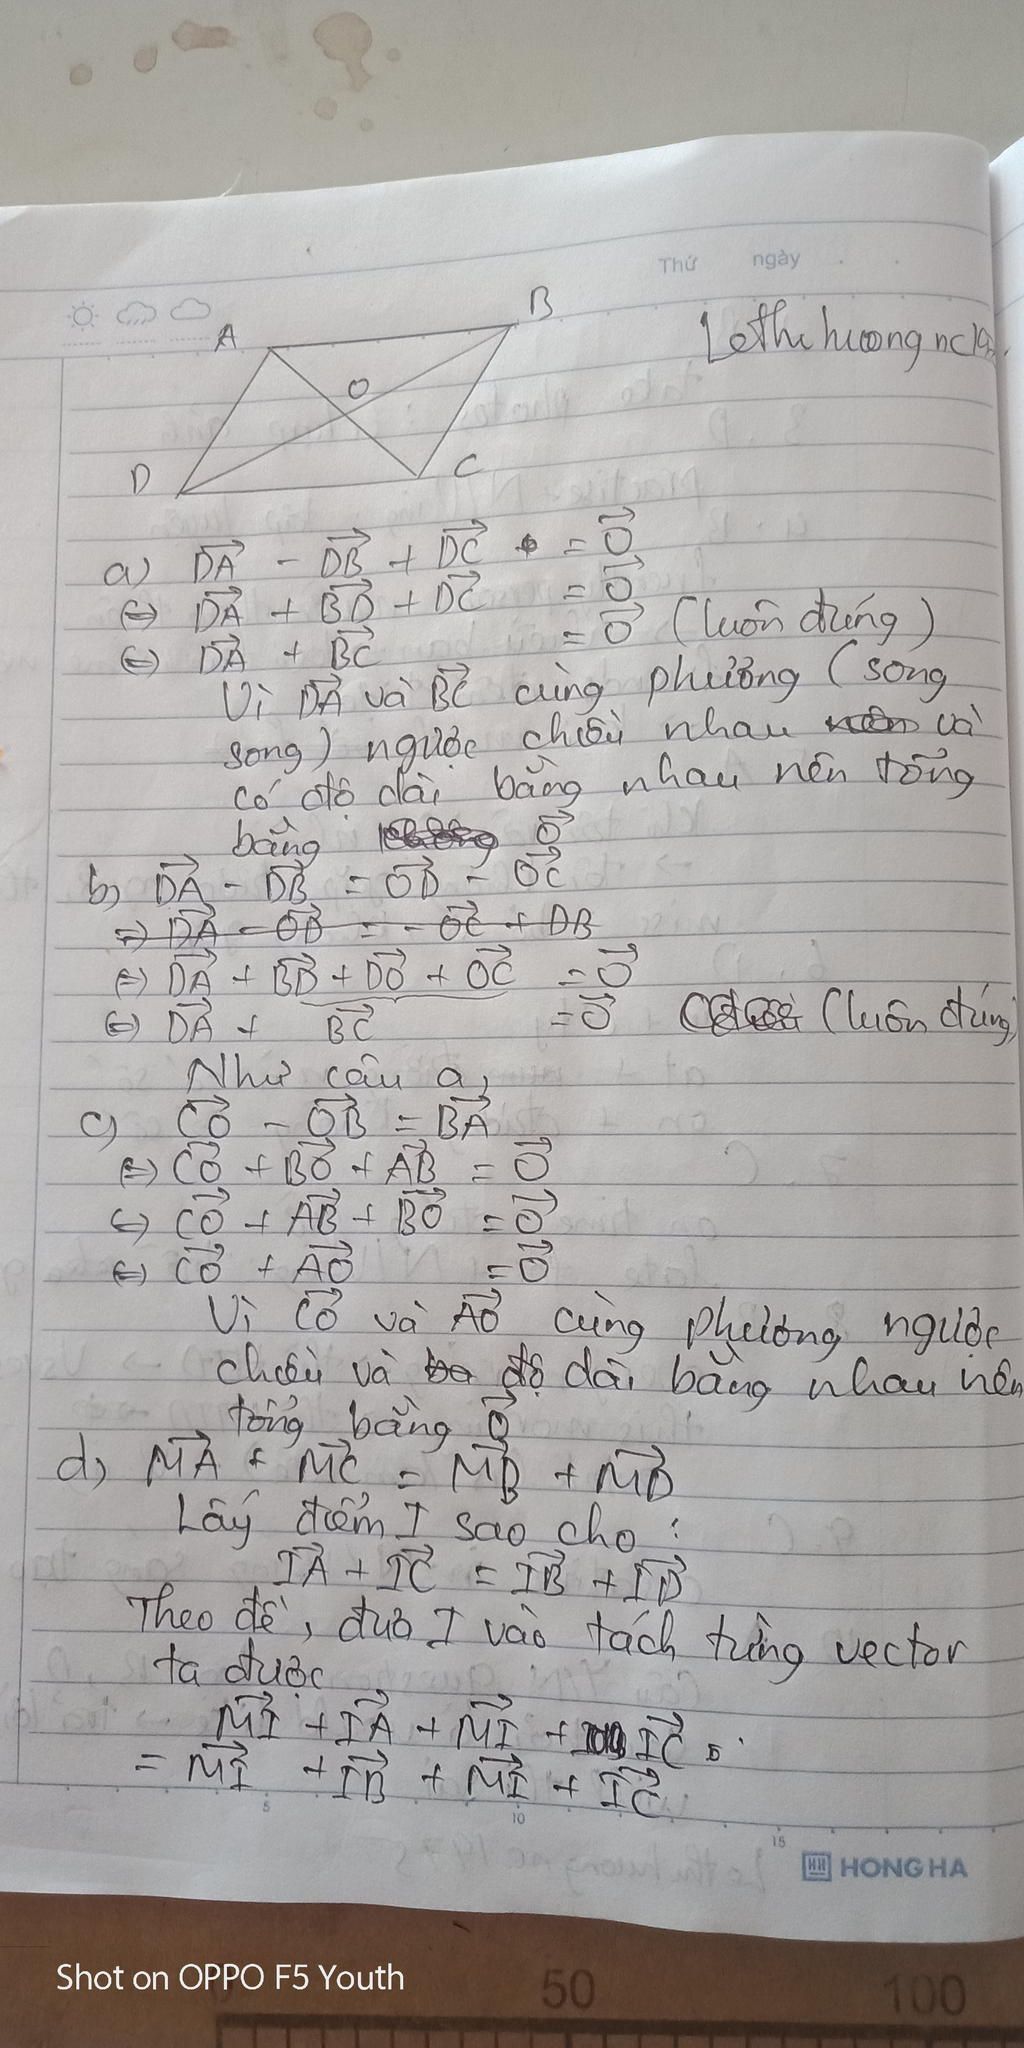 Thứ ngày
A
B
O
D
C
Lethihuongnc
a) DA⃗ - DB⃗ + DC⃗ = O⃗
⇔ DA⃗ + BD⃗ + DC⃗ = O⃗
⇔ DA⃗ + BC⃗ = O⃗ (luôn đúng)
Vì DA⃗ và BC⃗ cùng phương (song
song) ngược chiều nhau và
có độ dài bằng nhau nên tổng
bằng O⃗
b) DA⃗ - DB⃗ = OD⃗ - OC⃗
⇒ DA⃗ - OD⃗ = - OC⃗ + DB
⇔ DA⃗ + BD⃗ + DO⃗ + OC⃗ = O⃗
⇔ DA⃗ + BC⃗ = O⃗ (luôn đúng)
Như câu a,
c) CO⃗ - OB⃗ = BA⃗
⇔ CO⃗ + BO⃗ + AB⃗ = O⃗
⇔ CO⃗ + AB⃗ + BO⃗ = O⃗
⇔ CO⃗ + AO⃗ = O⃗
Vì CO⃗ và AO⃗ cùng phương ngược
chiều và độ dài bằng nhau nên
tổng bằng O⃗
d) MA⃗ + MC⃗ = MB⃗ + MD⃗
Lấy điểm I sao cho :
IA⃗ + IC⃗ = IB⃗ + ID⃗
Theo đề, đưa I vào tách từng vector
ta được
MI⃗ + IA⃗ + MI⃗ + IC⃗
= MI⃗ + IB⃗ + MI⃗ + IC⃗
5 10 15
HONG HA
Shot on OPPO F5 Youth
50 100